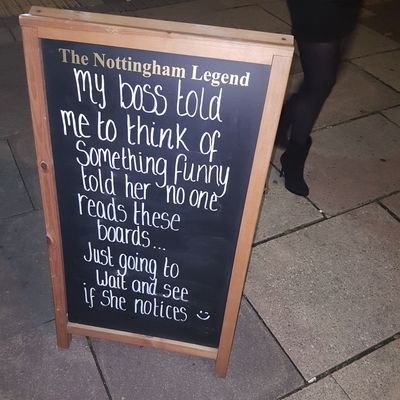 The Nottingham Legend
My boss told
me to think of
Something funny
told her no one
reads these
boards...
Just going to
wait and see
if She notices ☺